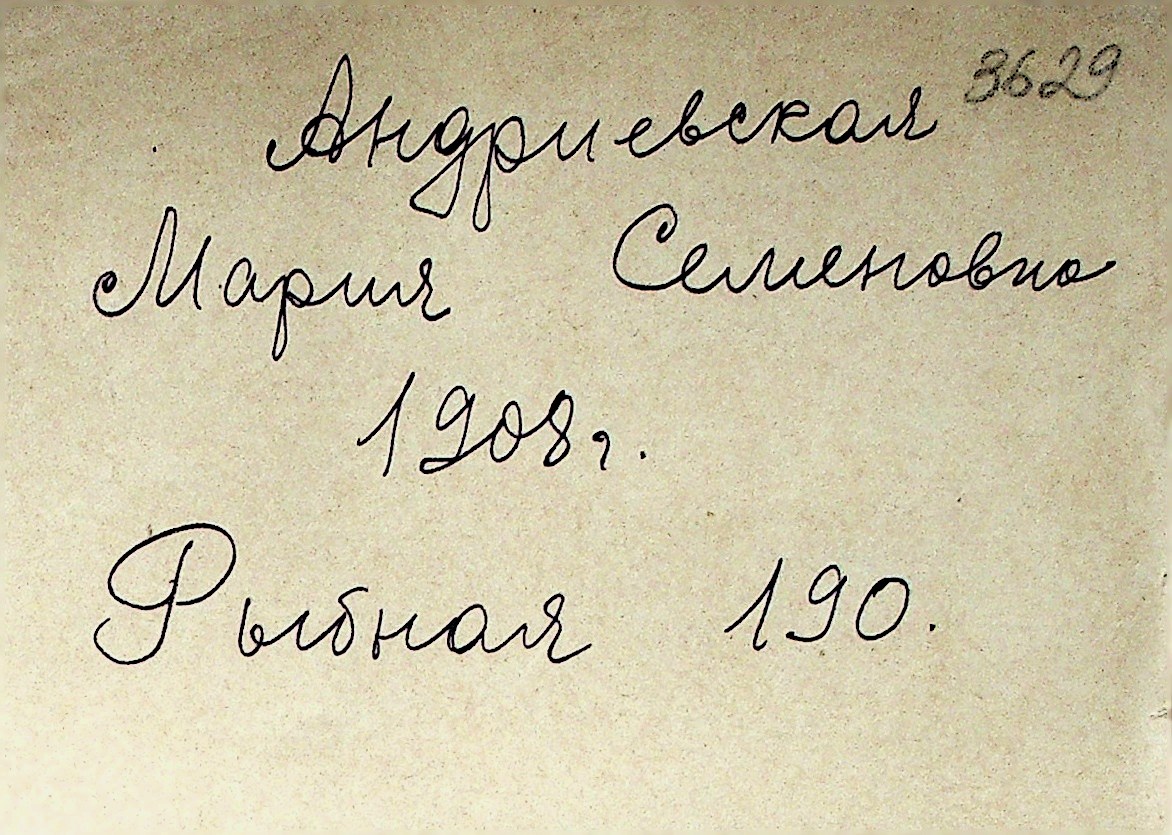 3629
Андриевская
Мария Семеновна
1908г.
Рыбная 190.